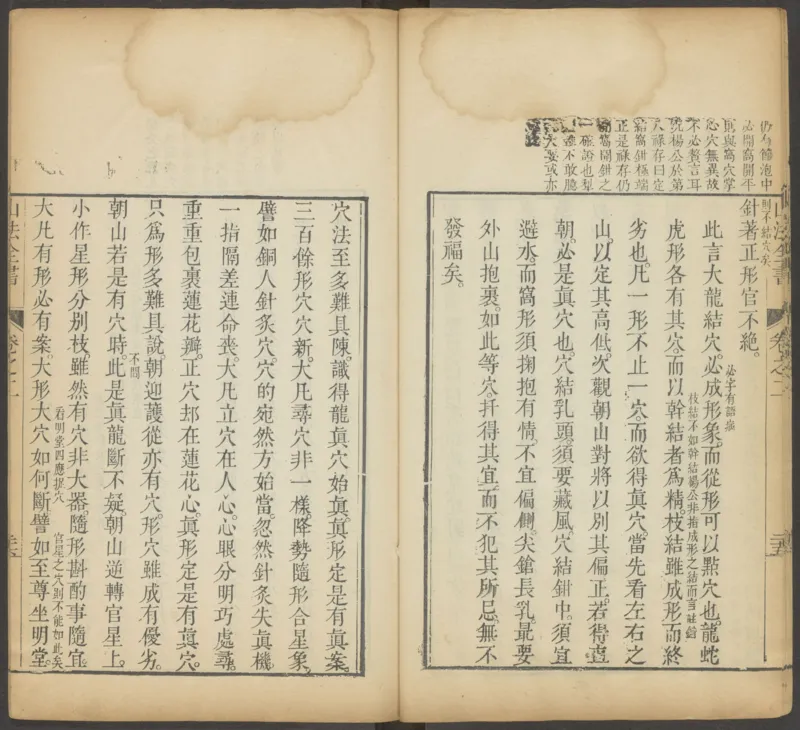 仍有飾泡中
必開窩開平
則與窩穴掌
心穴無異故
不必贅言耳
況楊公於第
八祿存曰定
結窩鉗梳端
正是祿存仍
開窩開鉗之
一確證也犁
雖不敢臆
大要或亦
則不結穴矣
針著正形官不絕。
此言大龍結穴。必成形象。而從形可以點穴也。龍蛇
必字有語病
枝結不如幹結楊公非指成形之結而言註錯
虎形各有其穴。而以幹結者爲精。枝結雖成形而終
劣也。凡一形不止一穴。而欲得真穴。當先看左右之
山。以定其高低。次觀朝山對將以別其偏正。若得直
朝。必是真穴也。穴結乳頭。須要藏風。穴結鉗中。須宜
避水。而窩形須掬抱有情。不宜偏側。尖鎗長乳。最要
外山抱裹。如此等穴。扦得其宜。而不犯其所忌。無不
發福矣。
山法全書
卷之二
穴法至多難具陳。識得龍真穴始真。真形定是有真案。
三百餘形穴穴新。大凡尋穴非一樣。降勢隨形合星象。
譬如銅人針灸穴。穴的宛然方始當。忽然針灸失真機。
一指隔差連命喪。大凡立穴在人心。心眼分明巧處尋。
重重包裹蓮花瓣。正穴却在蓮花心。真形定是有真穴。
只爲形多難具說。朝迎護從亦有穴。形穴雖成有優劣。
朝山若是有穴時。此是真龍斷不疑。朝山逆轉官星上。
不間
小作星形分別枝。雖然有穴非大器。隨形斟酌事隨宜。
大凡有形必有案。大形大穴如何斷。譬如至尊坐明堂。
看明堂四應捉穴
官星之穴則不能如此矣
山法全書
卷之二